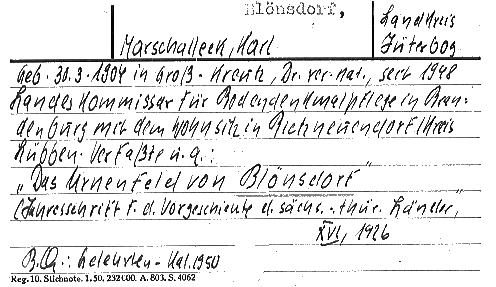 Blönsdorf,
Landkreis
Marschalleck, Karl
Jüterbog
geb. 30.3.1904 in Groß-Kreutz, Dr. rer. nat., seit 1948
Landeskommissar für Bodendenkmalpflege in Bran-
denburg mit dem Wohnsitz in Richneuendorf/Kreis
Lübben. Verfaßte u.a.:
"Das Urnenfeld von Blönsdorf"
(Jahresschrift f. d. Vorgeschichte d. sächs.-thür. Länder,
XVI, 1926
B.Q.: Gelehrten-Kal. 1950
Reg. 10. Stichnote. 1. 50. 232000. A. 803. S. 4062